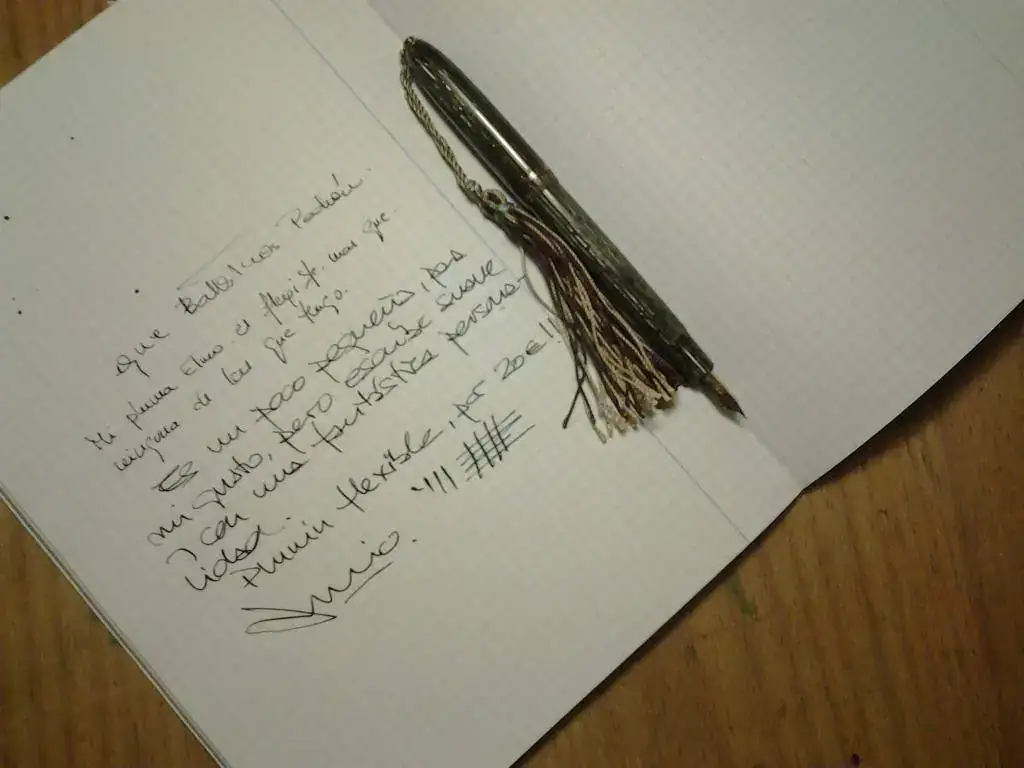 que Balbinos Pontevedra
Mi pluma es flexi. más que
ninguna de las que tengo.
Es un poco pequeña, para
mi gusto, pero escribe suave
y con una fantástica persona-
lidad.
Plumín flexible, por 20€!!